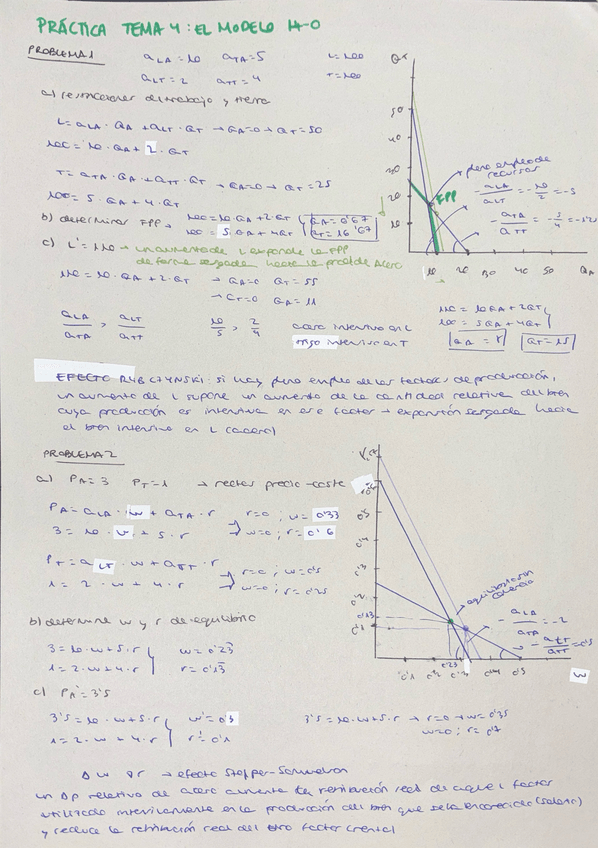 PRÁCTICA TEMA 4: EL MODELO H-O
PROBLEMA 1
aLA = 10 aTA = 5 L = 100
aLT = 2 aTT = 4 T = 100
a) restricciones de trabajo y tierra
L = aLA · QA + aLT · QT → QA = 0 → QT = 50
100 = 10 · QA + 2 · QT
T = aTA · QA + aTT · QT → QA = 0 → QT = 25
100 = 5 · QA + 4 · QT
b) determinar FPP → 100 = 10 QA + 2 QT
100 = 5 QA + 4 QT
QA = 6'67
QT = 16'67
c) L' = 110 → un aumento de L expande la FPP
de forma sesgada hacia la prod. de Acero
110 = 10 · QA + 2 · QT → QA = 0 QT = 55
→ QT = 0 QA = 11
aLA / aTA > aLT / aTT 10/5 > 2/4 acero intensivo en L
trigo intensivo en T
110 = 10 QA + 2 QT
100 = 5 QA + 4 QT
QA = 8 QT = 15
QT
50
40
30
20
10
10 20 30 40 50 QA
pleno empleo de
recursos
FPP
- aLA / aLT = - 10/2 = -5
- aTA / aTT = - 5/4 = -1'25
EFECTO RYBCZYNSKI: si hay pleno empleo de los factores de producción,
un aumento de L supone un aumento de la cantidad relativa del bien
cuya producción es intensiva en ese factor → expansión sesgada hacia
el bien intensivo en L (acero)
PROBLEMA 2
a) PA = 3 PT = 1 → rectas precio-coste
PA = aLA · w + aTA · r r = 0 ; w = 0'33
3 = 10 · w + 5 · r w = 0 ; r = 0'6
PT = aLT · w + aTT · r r = 0 ; w = 0'5
1 = 2 · w + 4 · r w = 0 ; r = 0'25
b) determine w y r de equilibrio
3 = 10 · w + 5 · r w = 0'23
1 = 2 · w + 4 · r r = 0'13
c) PA' = 3'5
3'5 = 10 · w + 5 · r w' = 0'3
1 = 2 · w + 4 · r r' = 0'1
3'5 = 10 · w + 5 · r → r = 0 → w = 0'35
w = 0 ; r = 0'7
0'5
0'4
0'3
0'2
0'13
0'1
0'1 0'2 0'23 0'3 0'4 0'5
w
equilibrio sin
comercio
- aLA / aTA = -2
- aLT / aTT = 0'5
Δ w ∇ r → efecto Stolper-Samuelson
un Δp relativo de acero aumenta la retribución real de aquel factor
utilizado intensivamente en la producción del bien que se ha encarecido (salario)
y reduce la retribución real del otro factor (renta)